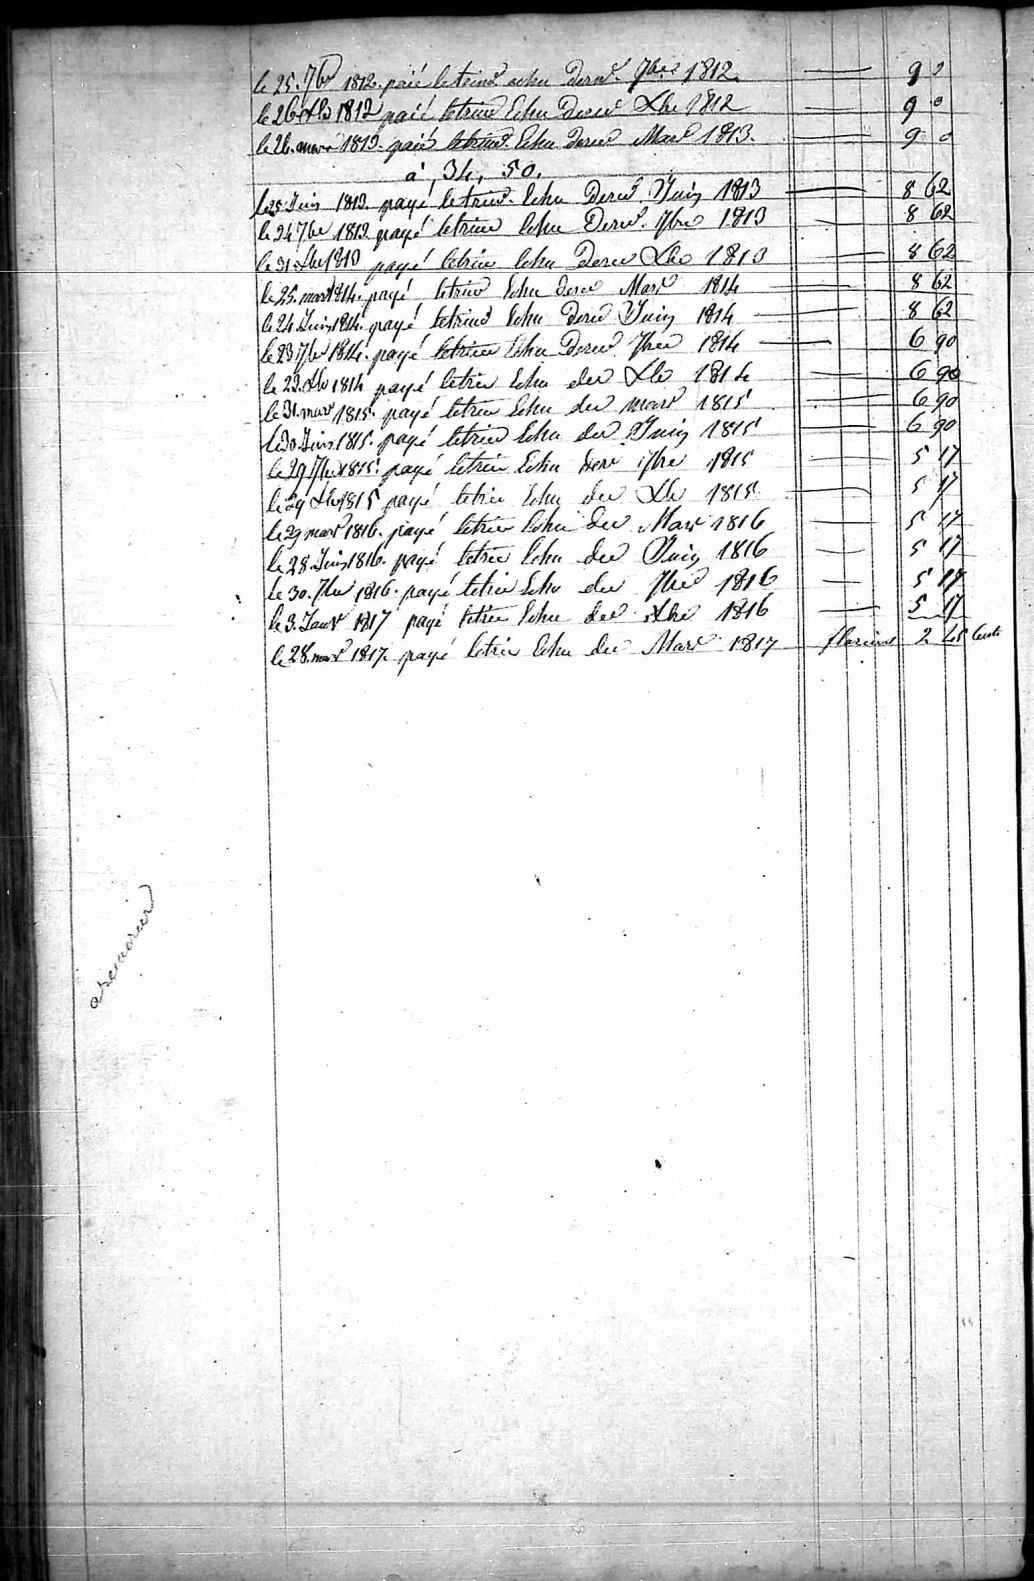 le 25. 7bre 1812. paié le trim. echu dern. 7bre 1812 9 0
le 26 Xbre 1812 paié letrim Echu dern Xbre 1812 9 0
le 26. mars 1813. paié letrim. Echu dern Mars 1813. 9 0
à 34, 50.
le 25. Juin 1813. payé letrim. Echu Dern Juin 1813 8 62
le 24 7bre 1813 payé letrim Echu Dern. 7bre 1813 8 62
le 31 Xbre 1813 payé letrim Echu Dern Xbre 1813 8 62
le 25. mars 1814. payé letrim Echu dern Mars 1814 8 62
le 24 Juin 1814. payé letrim Echu dern Juin 1814 8 62
le 23 7bre 1814. payé letrim Echu Dern 7bre 1814 6 90
le 23. Xbre 1814 payé letrim Echu der Xbre 1814 6 90
le 31. mars 1815. payé letrim Echu der mars 1815 6 90
le 30. Juin 1815. payé letrim Echu der Juin 1815 6 90
le 29 7bre 1815. payé letrim Echu dern 7bre 1815 5 17
le 29 Xbre 1815 payé letrim Echu der Xbre 1815 5 17
le 29 mars 1816. payé letrim Echu der Mars 1816 5 17
le 28. Juin 1816. payé letrim Echu der Juin 1816 5 17
le 30. 7bre 1816. payé letrim Echu der 7bre 1816 5 17
le 3. Janvr 1817 payé letrim Echu der Xbre 1816 5 17
le 28. mars 1817. payé letrim Echu der Mars 1817 florins 2 45 Cents